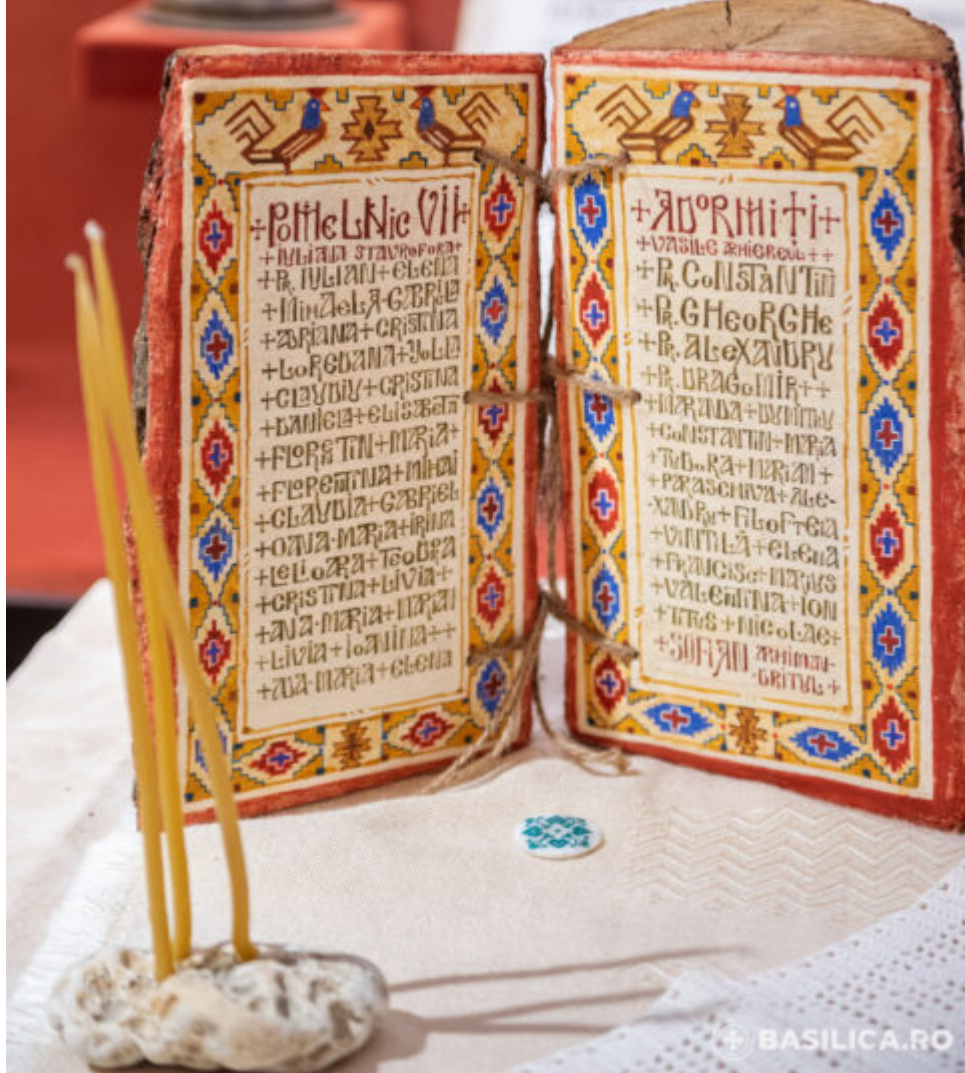 +POMELNIC VII+
+IULIANA STAVROFORA+
+PR. IULIAN+ELENA
+MIHAELA-GABRIELA
+ADRIANA+CRISTINA
+LOREDANA+
+CLAUDIU+CRISTINA
+DANIELA+ELISABETA
+FLORETIN+MARIA+
+FLORENTINA+MIHAI
+CLAUDIA+GABRIEL
+OANA-MARIA+IRINA
+LELIOARA+TEODORA
+CRISTINA+LIVIA+
+ANA-MARIA+MARIAN
+LIVIA+IOANINA++
+ANA-MARIA+ELENA
+ADORMITI+
+VASILE ARHIEREUL++
+PR. CONSTANTIN
+PR. GHEORGHE
+PR. ALEXANDRU
+PR. DRAGOMIR++
+MARANDA+DUMITRU
+CONSTANTIN+MARIA
+TUDORA+MARIAN+
+PARASCHIVA+ALE-
XANDRU+FILOFTEIA
+VINTILĂ+ELENA
+FRANCISC+MARIUS
+VALENTINA+ION
+TITUS+NICOLAE+
+SOFIAN ARHIMAN-
-DRITUL+
BASILICA.RO